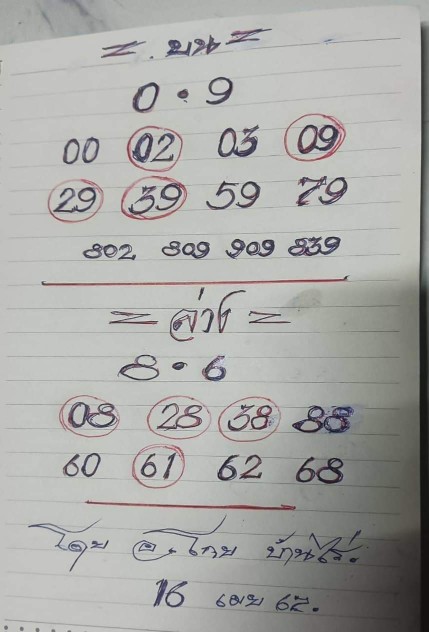 = บน =
0 • 9
00 02 03 09
29 39 59 79
802 809 909 839
= ล่าง =
8 • 6
08 28 38 88
60 61 62 68
โดย อ. โกย บ้านไร่.
16 เมย 67.